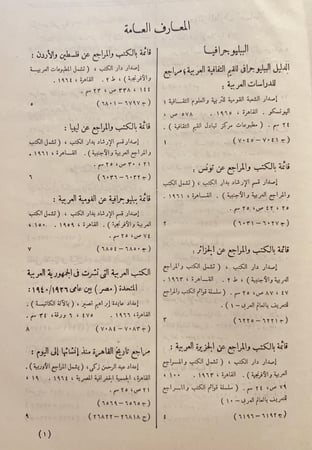 المعارف العامة
الببليوجرافيا
الدليل الببليوجرافى للقيم الثقافية العربية؛ مراجع
للدراسات العربية :
إصدار الشعبة القومية للتربية والعلوم الثقافية (
اليونسكو . القاهرة ، ١٩٦٥ . ٥٧٨ ص ،
٢٤ سم . ( مطبوعات مركز تبادل القيم الثقافية ) .
( ج ٧٠٤١ – ٧٠٤٥ )
١
قائمة بالكتب والمراجع عن تونس .
إصدار قسم الإرشاد بدار الكتب ، ( تشمل الكتب
والمراجع العربية والأجنبية ) . القاهرة ، ١٩٦١ .
٢٥ ، ٤٢ ص ، ٢٥ سم .
( ج ٦٠٢٧ – ٦٠٣١ )
٢
قائمة بالكتب والمراجع عن الجزائر .
إصدار دار الكتب ، ( تشمل الكتب والمراجع
العربية والأجنبية ) ، ط ٢ . القاهرة ، ١٩٦٣ .
٤٧ ، ٨٧ ص ، ٢٥ سم . ( سلسلة قوائم الكتب والمراجع
للتعريف بالعالم العربى – ١ )
( ج ٦٢٢١ – ٦٢٢٥ )
٣
قائمة بالكتب والمراجع عن الجزيرة العربية :
إصدار دار الكتب ، ( تشمل الكتب والمراجع
العربية والأجنبية ) . القاهرة ، ١٩٦٣ . ١٠٠ ،
٧٩ ص ، ٢٤ سم . ( سلسلة قوائم الكتب والمراجع
للتعريف بالعالم العربى – ١٠ )
( ج ٦١٩٢ – ٦١٩٦ )
٤
قائمة بالكتب والمراجع عن فلسطين والأردن :
إصدار دار الكتب ، ( تشمل المطبوعات العربية
والأفرنجية ) ، ط ٢ . القاهرة ، ١٩٦٤ .
١٤٤ ، ٣٣٨ ص ، ٢٣ سم .
( ج ٦٧٩٧ – ٦٨٠١ )
٥
قائمة بالكتب والمراجع عن ليبيا :
إصدار قسم الإرشاد بدار الكتب ، ( تشمل الكتب
والمراجع العربية والأجنبية ) . القاهرة ، ١٩٦١ .
٢١ ، ٣٠ ص ، ٢٥ سم .
( ج ٦٠٣٢ – ٦٠٣٦ )
٦
قائمة ببليوجرافية عن القومية العربية :
إصدار قسم الإرشاد بدار الكتب ، ( تشمل المراجع
العربية والأفرنجية ) . القاهرة ، ١٩٥٩ . ١٠٠ ،
٧٤ ص ، ٢٥ سم .
( ج ٦٨٥٠ – ٦٨٥٤ )
٧
الكتب العربية التى نشرت فى الجمهورية العربية
المتحدة ( مصر ) بين عامى ١٩٢٦ / ١٩٤٠ :
إعداد عايدة إبراهيم نصير ، ( بالآلة الكاتبة ) .
القاهرة ، ١٩٦٦ . ٤٧٥ ، ٦ ورقة ، ٣٤ سم .
( ج ٧٠٨٣ – ٧٠٨٤ )
٨
مراجع تاريخ القاهرة منذ إنشائها إلى اليوم :
إعداد عبد الرحمن زكى ، ( يشمل المراجع الأوربية ) .
القاهرة ، الجمعية الجغرافية المصرية ، ١٩٦٤ . ١٩ ،
٢١ ص ، ٢٥ سم .
( ج ٦٥٦٥ – ٦٥٦٩ )
( ج ٢٦٨١٨ – ٢٦٨٢٢ )
٩
( ١ )